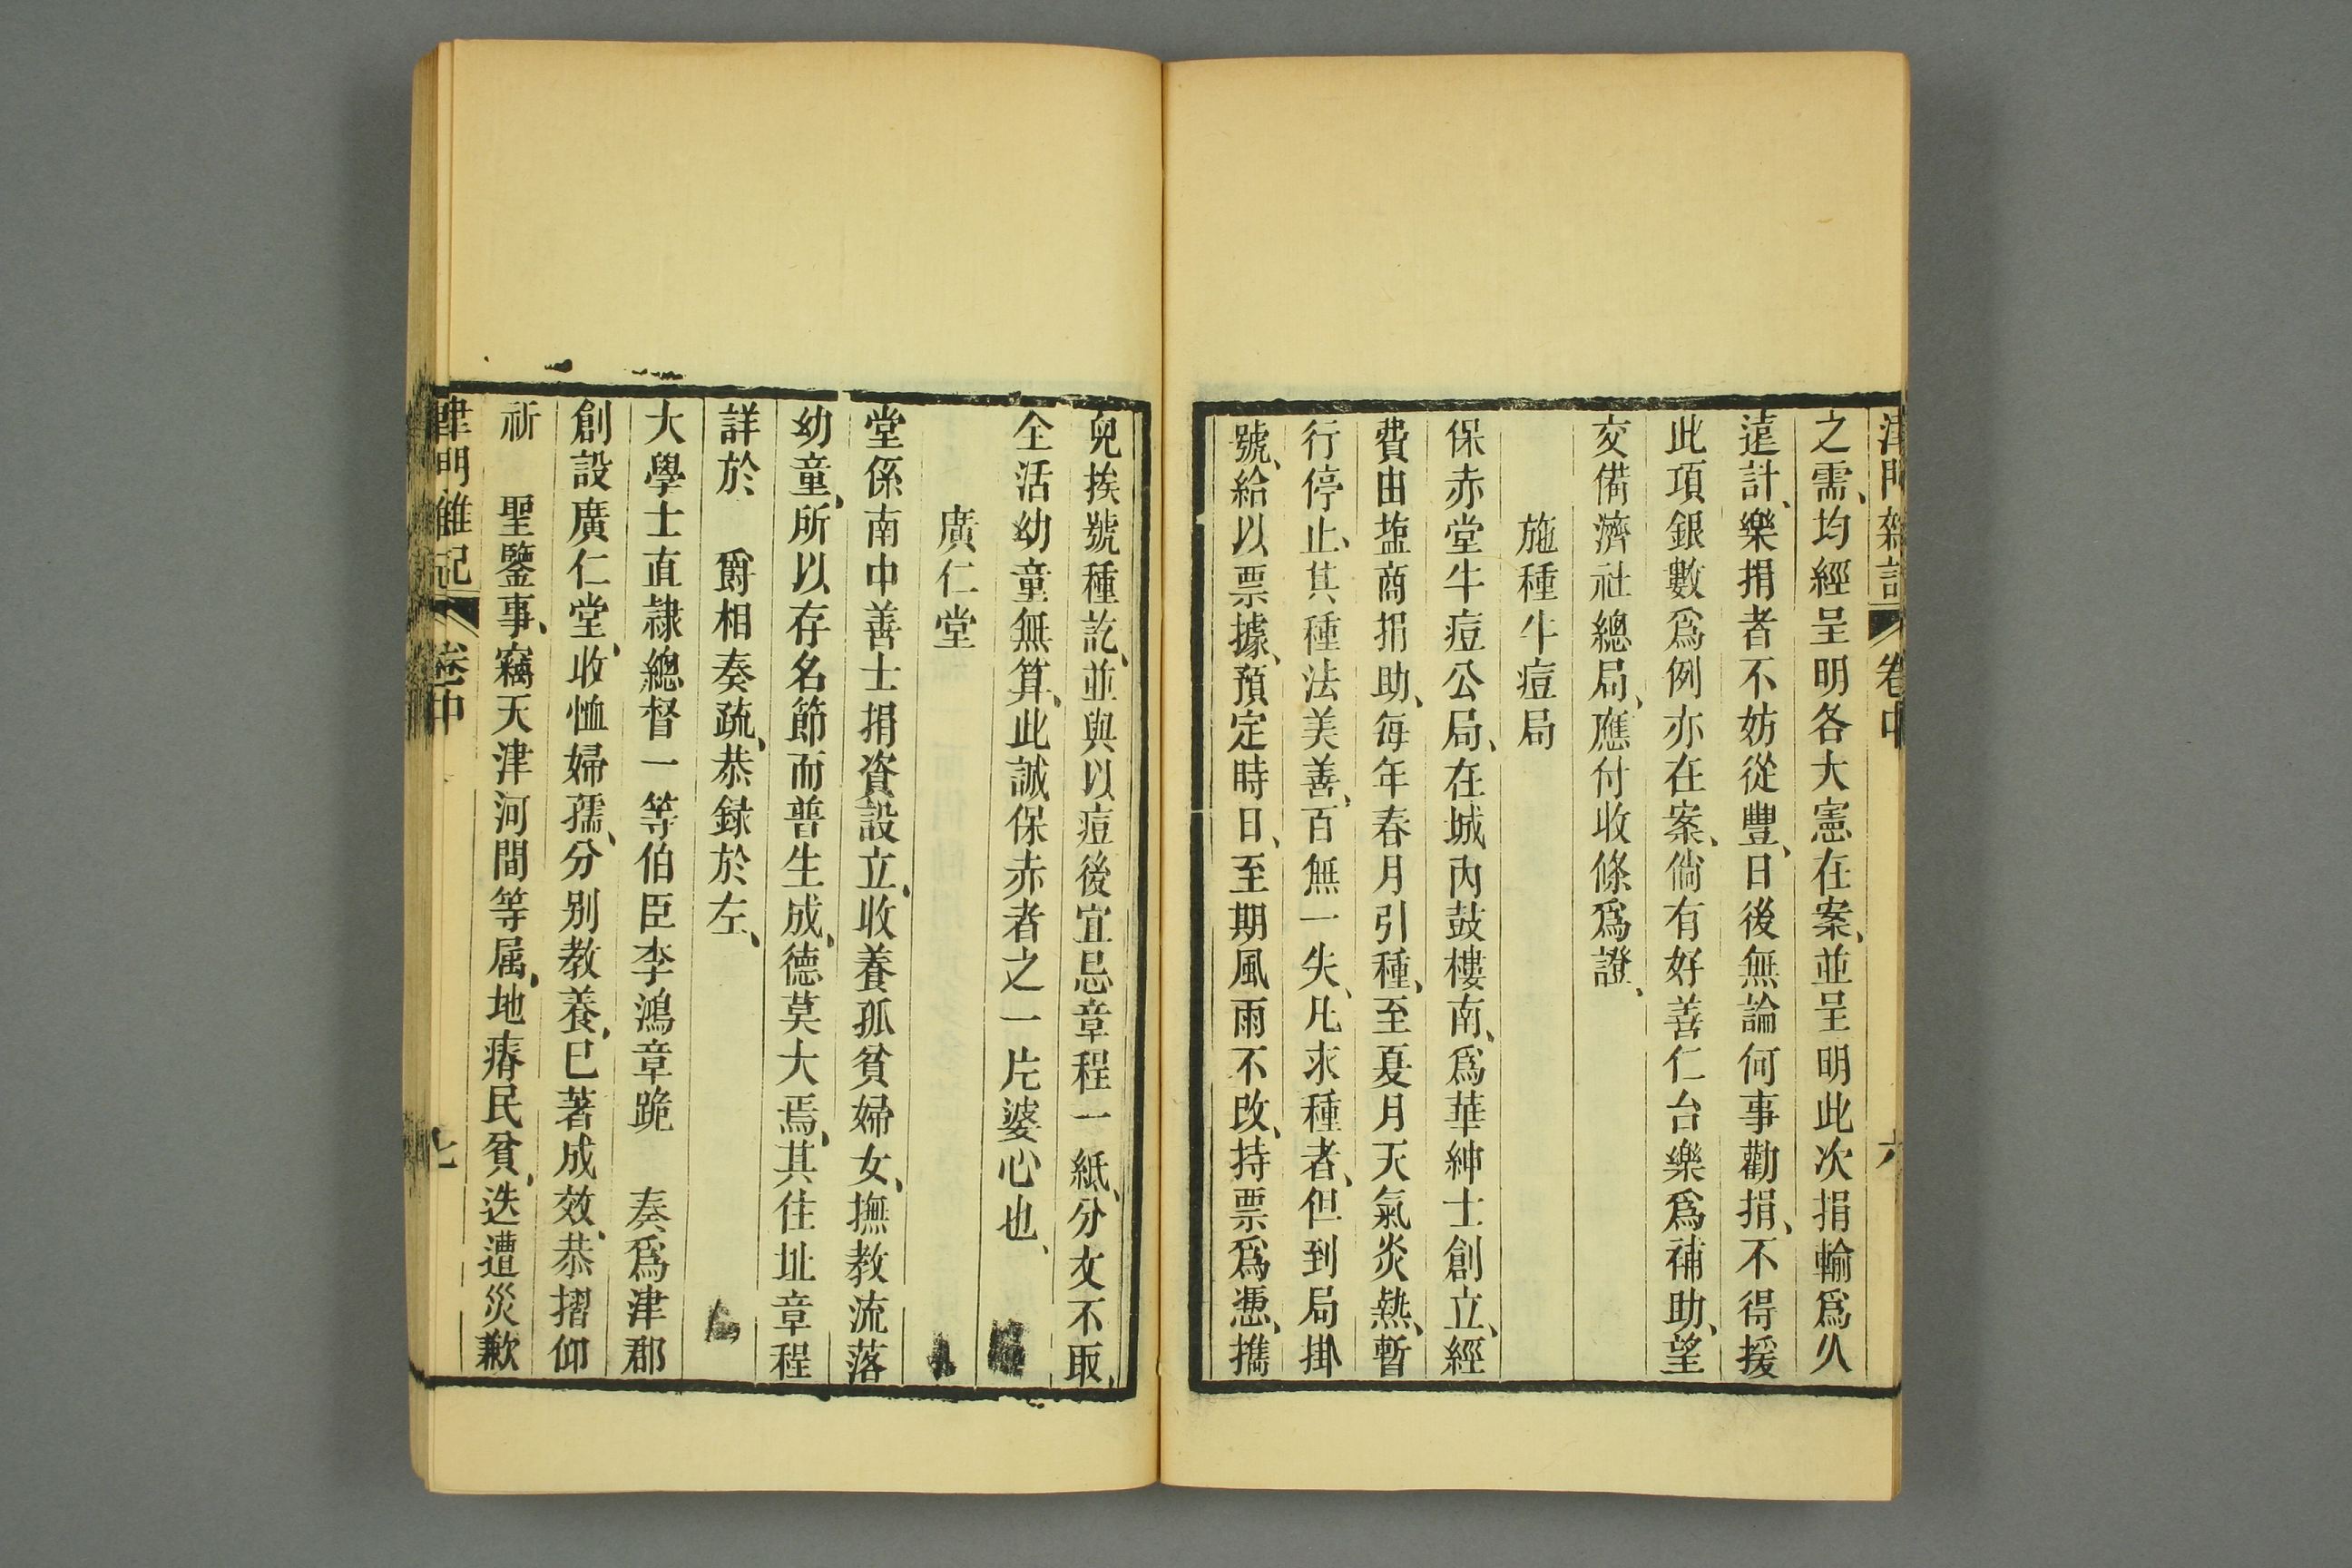 津門雜記 卷中 六
之需、均經呈明各大憲在案、並呈明此次捐輸爲久
遠計、樂捐者不妨從豐、日後無論何事勸捐、不得援
此項銀數爲例亦在案、倘有好善仁台樂爲補助、望
交備濟社總局、應付收條爲證、
施種牛痘局
保赤堂牛痘公局、在城内鼓樓南、爲華紳士創立、經
費由塩商捐助、每年春月引種、至夏月天氣炎熱、暫
行停止、其種法美善、百無一失、凡求種者、但到局掛
號、給以票據、預定時日、至期風雨不改、持票爲憑、攜
兒挨號種訖、並與以痘後宜忌章程一紙、分文不取、
全活幼童無算、此誠保赤者之一片婆心也、
廣仁堂
堂係南中善士捐資設立、收養孤貧婦女、撫教流落
幼童、所以存名節而普生成、德莫大焉、其住址章程
詳於 爵相奏疏、恭録於左、
大學士直隷總督一等伯臣李鴻章跪 奏爲津郡
創設廣仁堂、收恤婦孺、分别教養、已著成效、恭摺仰
祈 聖鑒事、竊天津河間等属、地瘠民貧、迭遭災歉
津門雜記 卷中 七